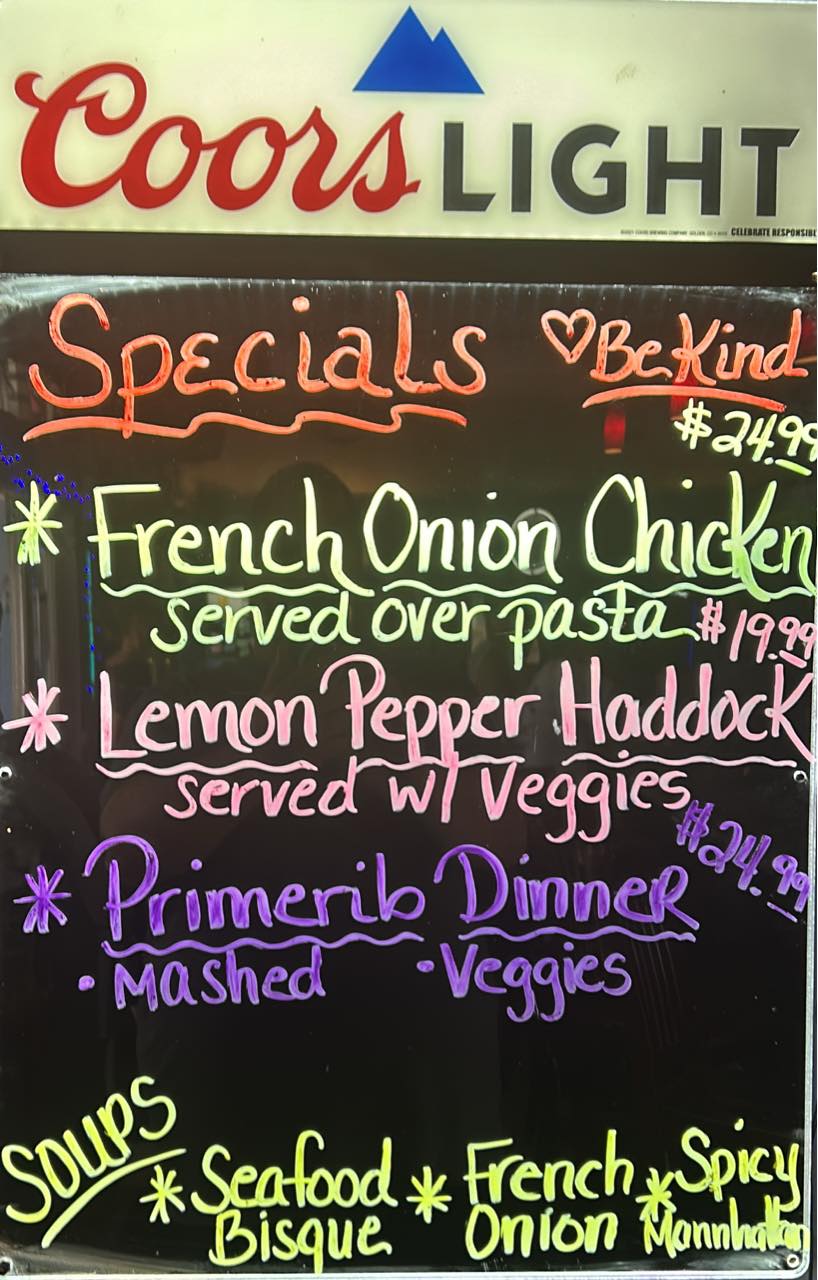 Coors LIGHT
CELEBRATE RESPONSIBL
Specials ♡Be Kind
$24.99
* French Onion Chicken
served over pasta $19.99
* Lemon Pepper Haddock
served w/ Veggies
$24.99
* Primerib Dinner
• Mashed • Veggies
Soups
* Seafood * French * Spicy
Bisque Onion Mannhattan